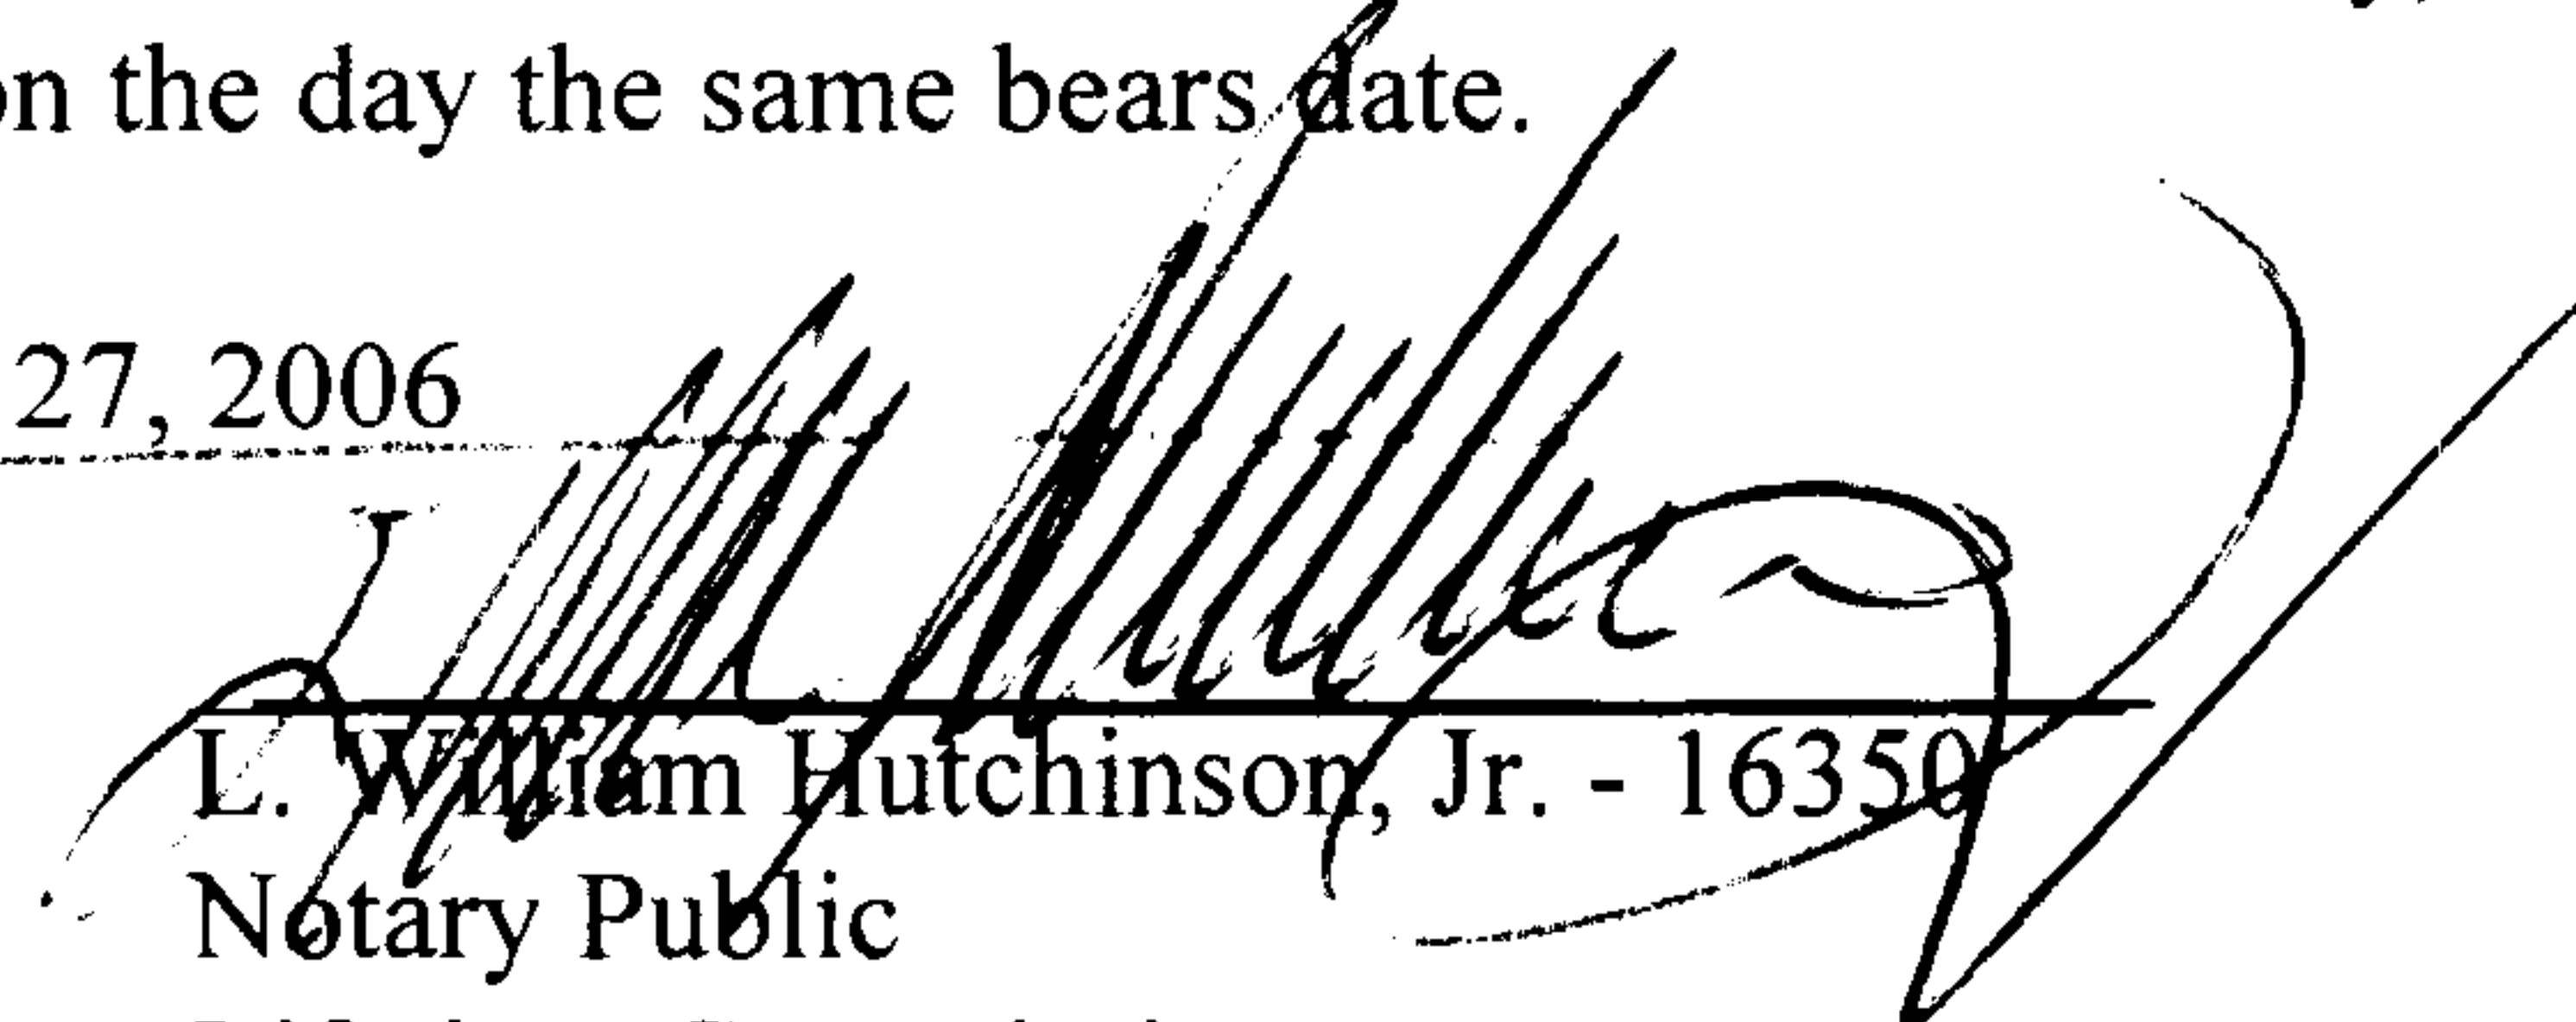 on the day the same bears date.
27, 2006
L. William Hutchinson, Jr. - 16350
Notary Public